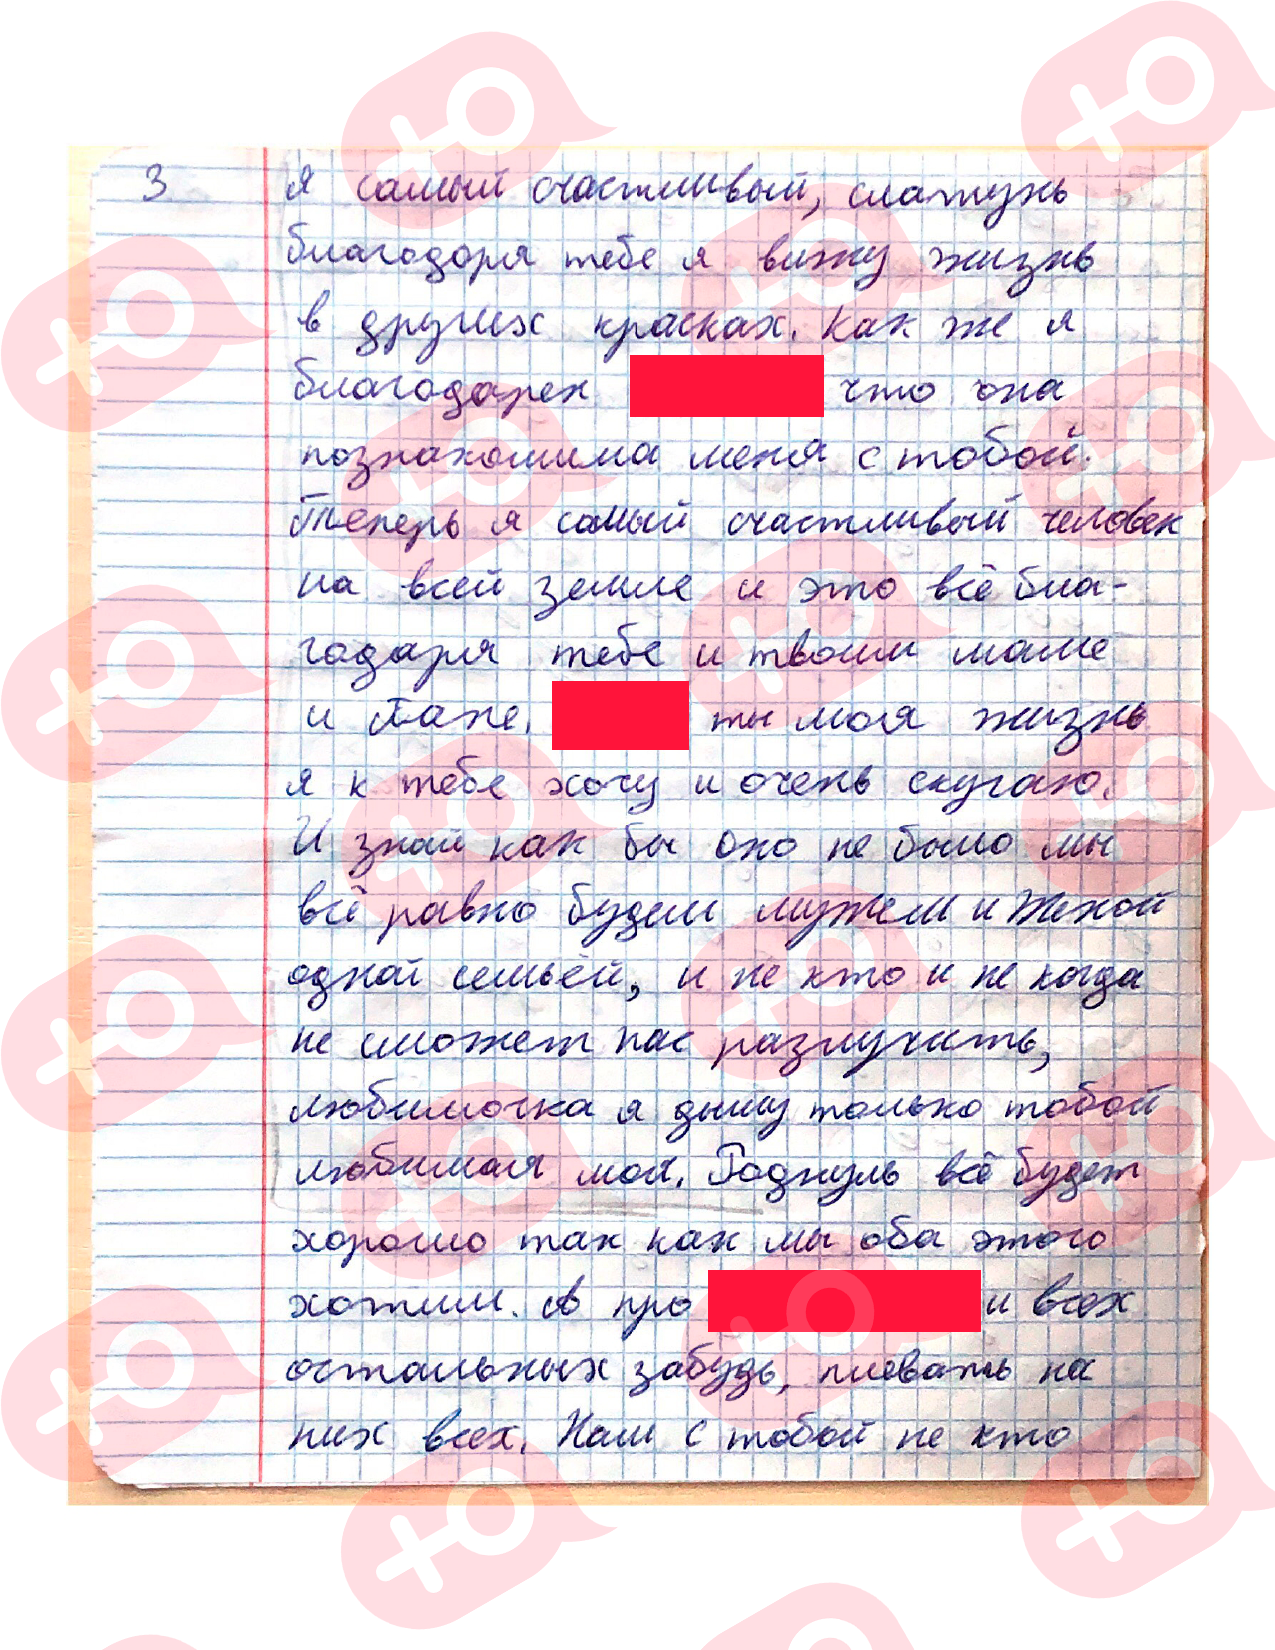 3 Я самый счастливый, слатунь
благодоря тебе я вижу жизнь
в других красках. Как же я
благодарен что она
познакомила меня с тобой.
Теперь я самый счастливый человек
на всей земле и это всё бла-
годаря тебе и твоим маме
и Папе. ты моя жизнь
я к тебе хочу и очень скучаю.
И знай как бы оно не было мы
всё равно будем мужем и Женой
одной семьёй, и не кто и не когда
не сможет нас разлучить,
любимочка я дышу только тобой
любимая моя. Роднуль всё будет
хорошо так как мы оба этого
хотим. А про и всех
остальных забудь, плевать на
них всех. Нам с тобой не кто